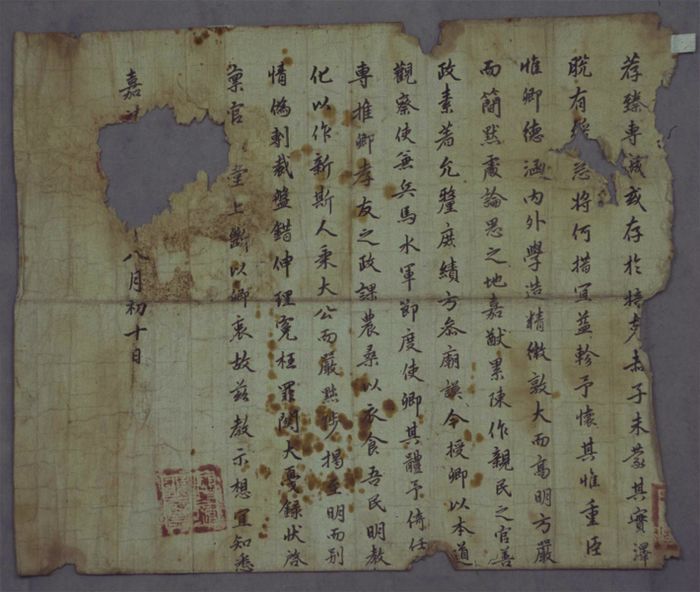 荐臻專城或存於掊克赤子未蒙其實澤
脫有急將何措宜益軫予懷其惟重臣
惟卿德涵內外學造精微敦大而高明方嚴
而簡默處論思之地嘉猷累陳作親民之官善
政素著允釐庶績方叅廟謨今授卿以本道
觀察使兼兵馬水軍節度使卿其體予倚任
專推卿孝友之政課農桑以衣食吾民明教
化以作新斯人秉大公而嚴黜陟揭至明而別
情僞剸裁盤錯伸理冤枉罪關大辟錄狀啓
稟官堂上斷以卿衷故玆教示想宜知悉
嘉 八月初十日